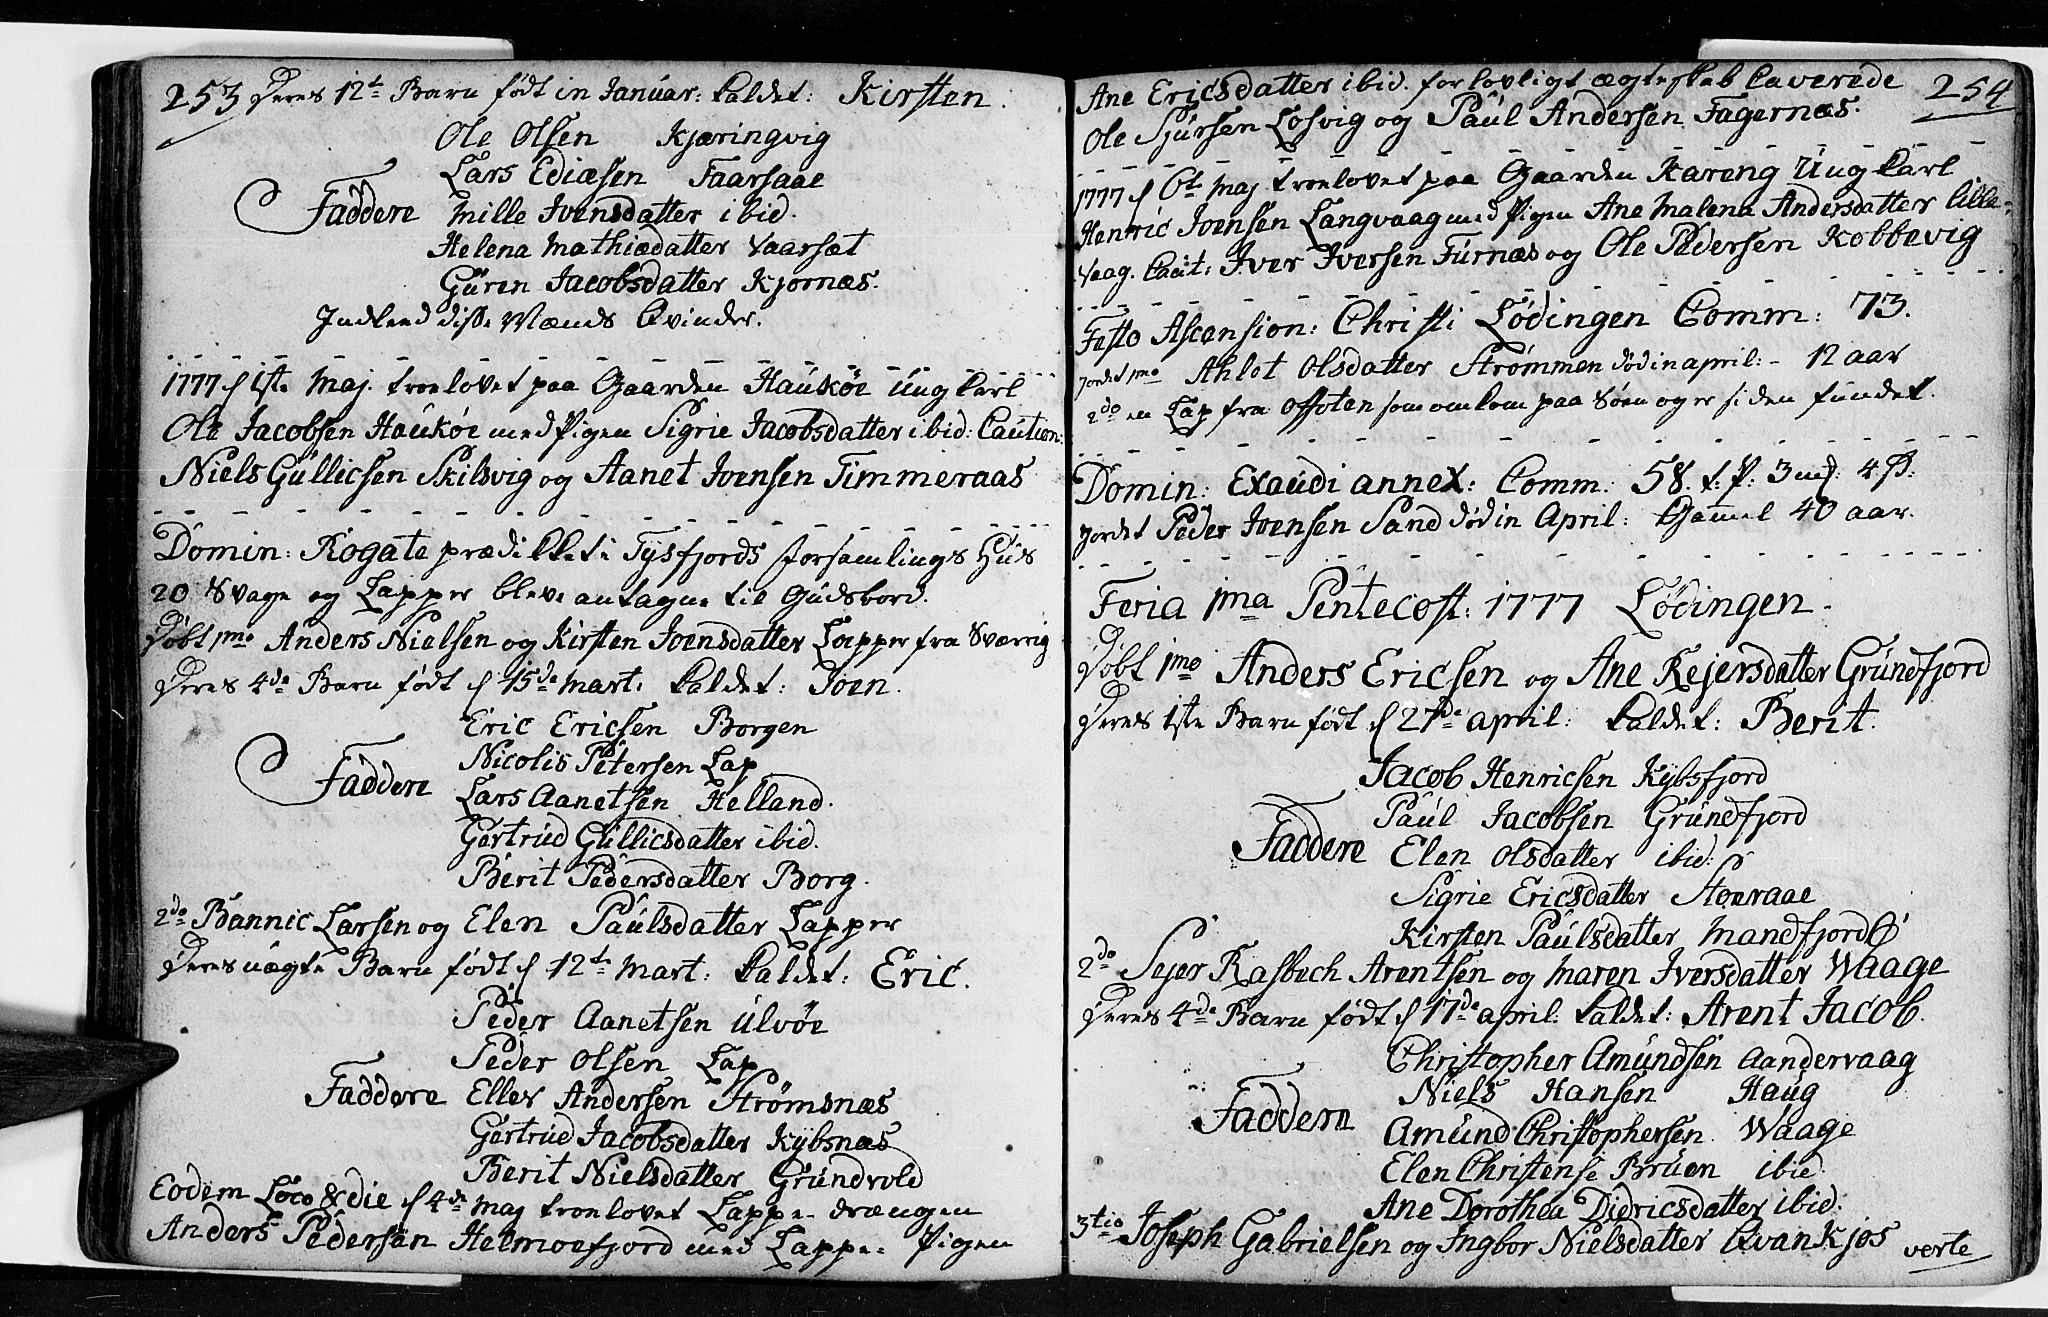 253 Deres 12te Barn født in Januar: kaldet: Kirsten.
Ole Olsen Kjæringvig
Lars Ediæsen Faarsaae
Faddere Mille Ivensdatter ibid.
Helena Mathiædatter Vaarsæt
Guren Jacobsdatter Kjornæs.
Indleed disse Mænds Qvinder.
1777 d 1ste Maj. troelovet paa Gaarden Haukøe Ung Karl
Ole Jacobsen Haukøe med Pigen Sigrie Jacobsdatter ibid: Caution:
Niels Gullicsen Skilsvig og Aanet Joensen Timmeraas
Domin: Rogate prædikket i Tysfjords Forsamlings Huus
20 Svage og Lapper bleve antagne til Gudsbord.
Døbt 1mo Anders Nielsen og Kirsten Joensdatter Lapper fra Sværrig
Deres 4de Barn født d 15de Mart: kaldet: Joen.
Eric Ericsen Borgen
Nicolis Petersen Lap
Faddere Lars Aanetsen Helland.
Gertrud Gullicsdatter ibid.
Berit Pedersdatter Borg.
2do Bannic Larsen og Elen Paulsdatter Lapper
Deres uægte Barn født d 12te Mart: kaldet: Eric.
Peder Aanetsen Ulvøe
Peder Olsen Lap
Faddere Eller Andersen Strømsnæs
Gertrud Jacobsdatter Kybsnæs
Berit Nielsdatter Grundvold
Eodem Loco & die d 4de Maj troelovet Lappe drængen
Anders Pedersen Helmoefjord med Lappe Pigen
Ane Ericsdatter ibid. for lovligt ægteskab Caverede 254
Ole Sjursen Losvig og Paul Andersen Fagernæs.
1777 d 6te Maj troelovet paa Gaarden Kareng Ung Karl
Henric Joensen Langvaag med Pigen Ane Malena Andersdatter lille-
vaag. Caut: Iver Iversen Furnæs og Ole Pedersen Kobbevig
Festo Ascension: Christi Lødingen Comm: 73.
Jordet 1mo Ahlot Olsdatter Strømmen død in april: - 12 aar
2do en Lap fra Offoten som omkom paa Søen og er siden fundet.
Domin: Exaudi annex: Comm: 58. t: P: 3 mk: 4 s:
Jordet Peder Joensen Sand død in April: Gamel 40 aar.
Feria 1ma Pentecost: 1777 Lødingen.
Døbt 1mo Anders Ericsen og Ane Rejersdatter Grundfjord
Deres 1ste Barn født d 27de april: kaldet: Berit.
Jacob Henricsen Kybsfjord
Paul Jacobsen Grundfjord
Faddere Elen Olsdatter ibid:
Sigrie Ericsdatter Stoeraae
Kirsten Paulsdatter Mandfjord
2do Sejer Rasbech Arentsen og Maren Iversdatter Waage
Deres 4de Barn født d 17de april: kaldet: Arent Jacob.
Christopher Amundsen Aandervaag
Niels Hansen Haug
Faddere Amund Christophersen Waage
Elen Christense Bruen ibid
Ane Dorothea Didricsdatter ibid:
3tio Joseph Gabrielsen og Ingbor Nielsdatter Qvankjos verte